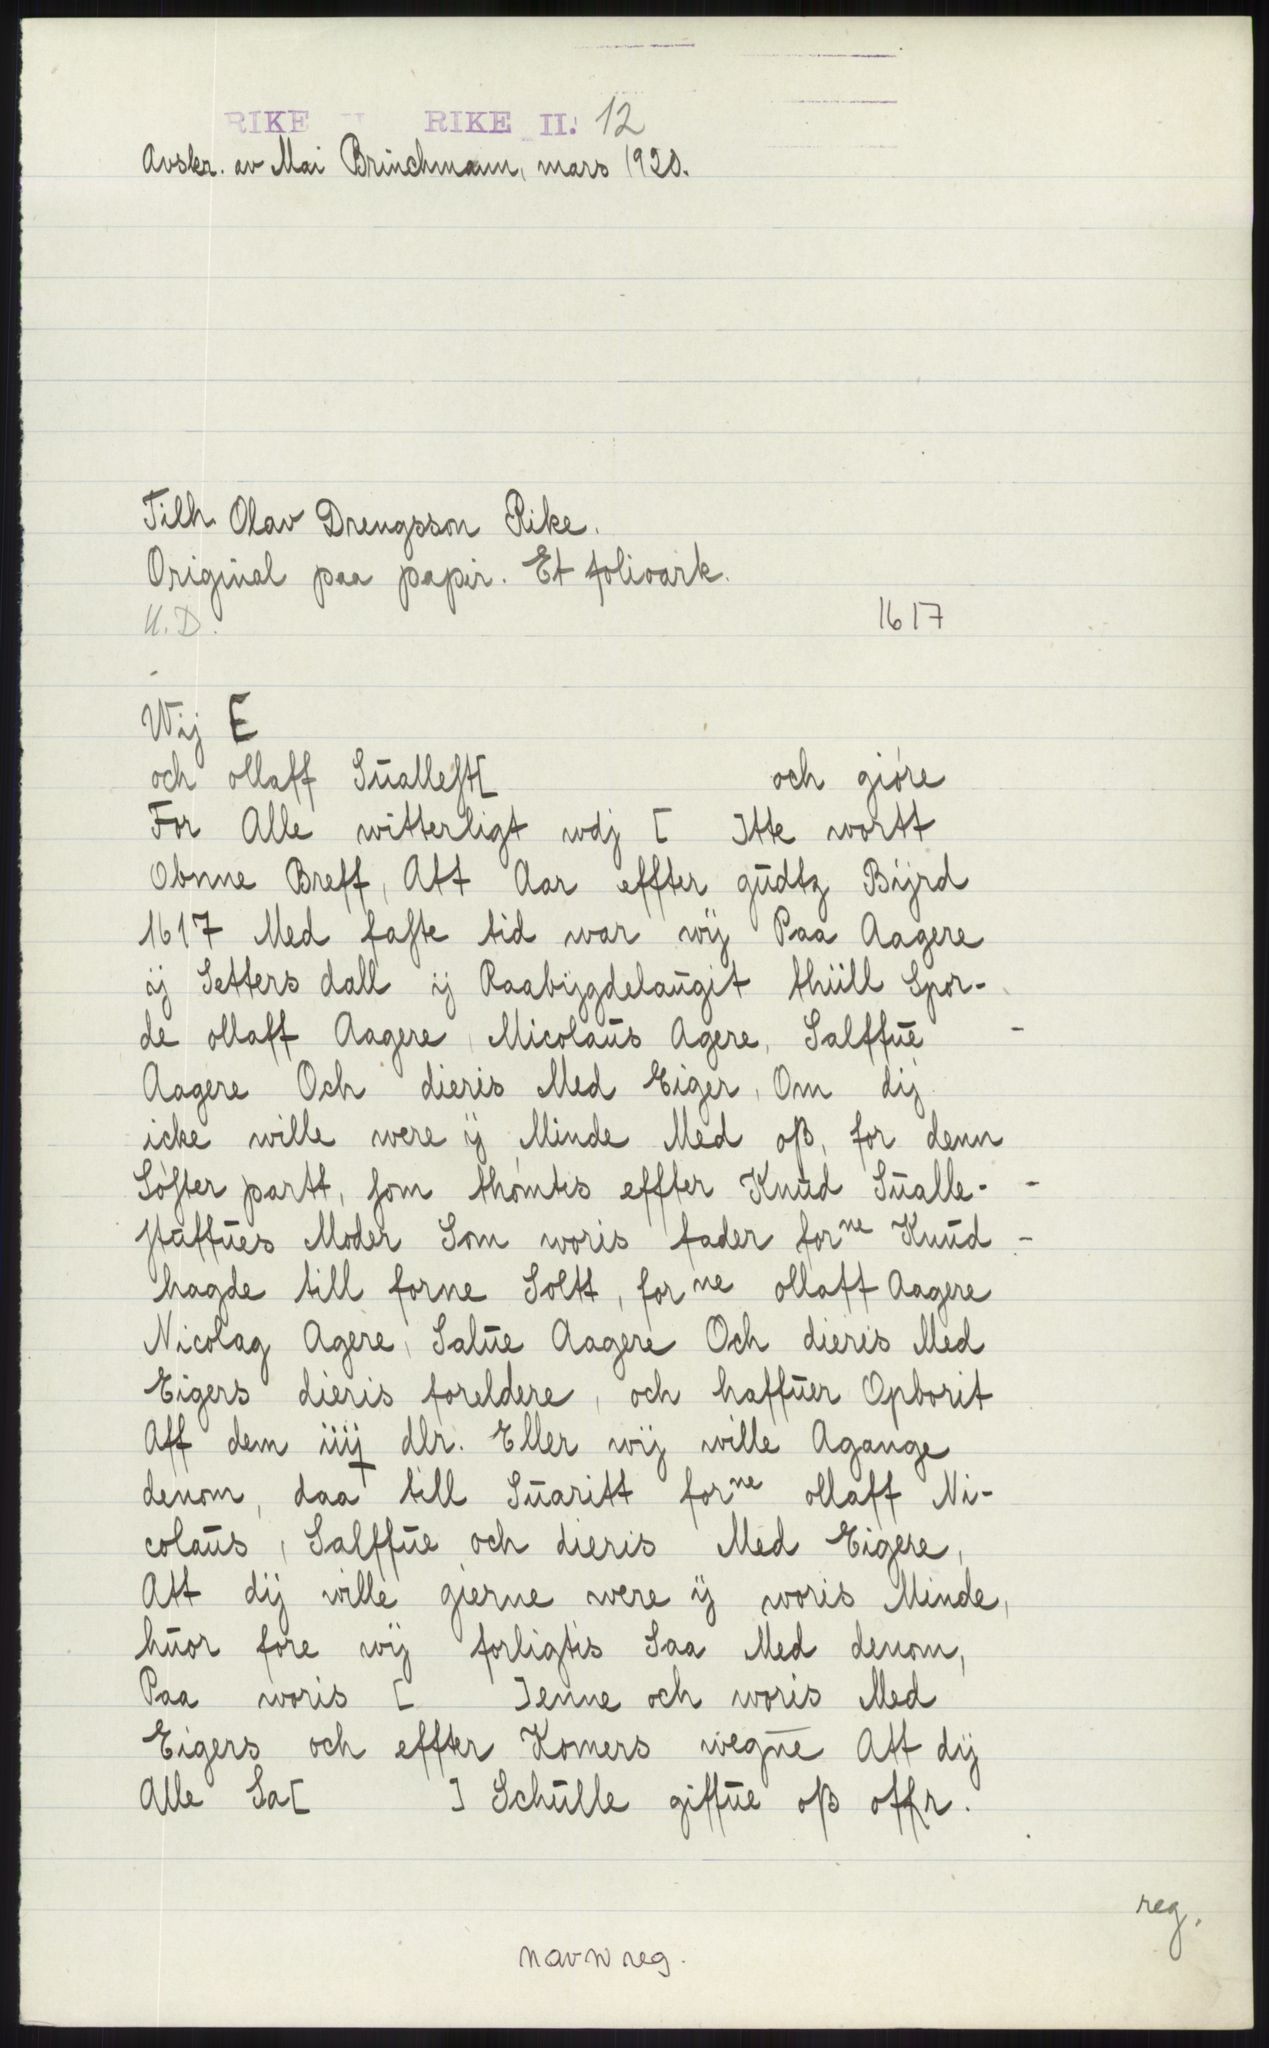 RIKE II RIKE II. 12
Avskr. av Mai Brinchmann, mars 1920.
Tilh. Olav Drengsson Rike.
Original paa papir. Et folioark.
U.D. 1617
Wij [
och ollaff Sŭallest[ och giøre
For Alle witterligt wdj [ ]tte wortt
Obnne Breff, Att Aar effter gŭdtz Bijrd
1617 Med faste tid war wij Paa Aagere
ij Setters dall ij Raabijgdelaŭgit thiill Spor-
de ollaff Aagere, Nicolaŭs Agere, Salffŭe
Aagere Och dieris Med Eiger, Om dij
icke wille were ij Minde Med oß, for denn
Søster partt, som thømtis effter Knŭd Sŭalle-
stŭffŭes Moder Som woris fader forne Knŭd
hagde till forne Soltt, forne ollaff Aagere
Nicolag Agere, Salŭe Aagere Och dieris Med
Eigers dieris foreldere, och haffŭer Opborit
Aff dem iiij dlr. Eller wij wille Agange
denom, daa till Sŭaritt forne ollaff Ni-
colaŭs, Salffŭe och dieris Med Eigere,
Att dij wille gierne were ij woris Minde,
hŭor fore wij forligtis Saa Med denom,
Paa woris [ ]enne och woris Med
Eigers och effter Komers wegne Att dij
Alle Sa[ ] Schŭlle giffŭe oß offr.
reg.
navnreg.